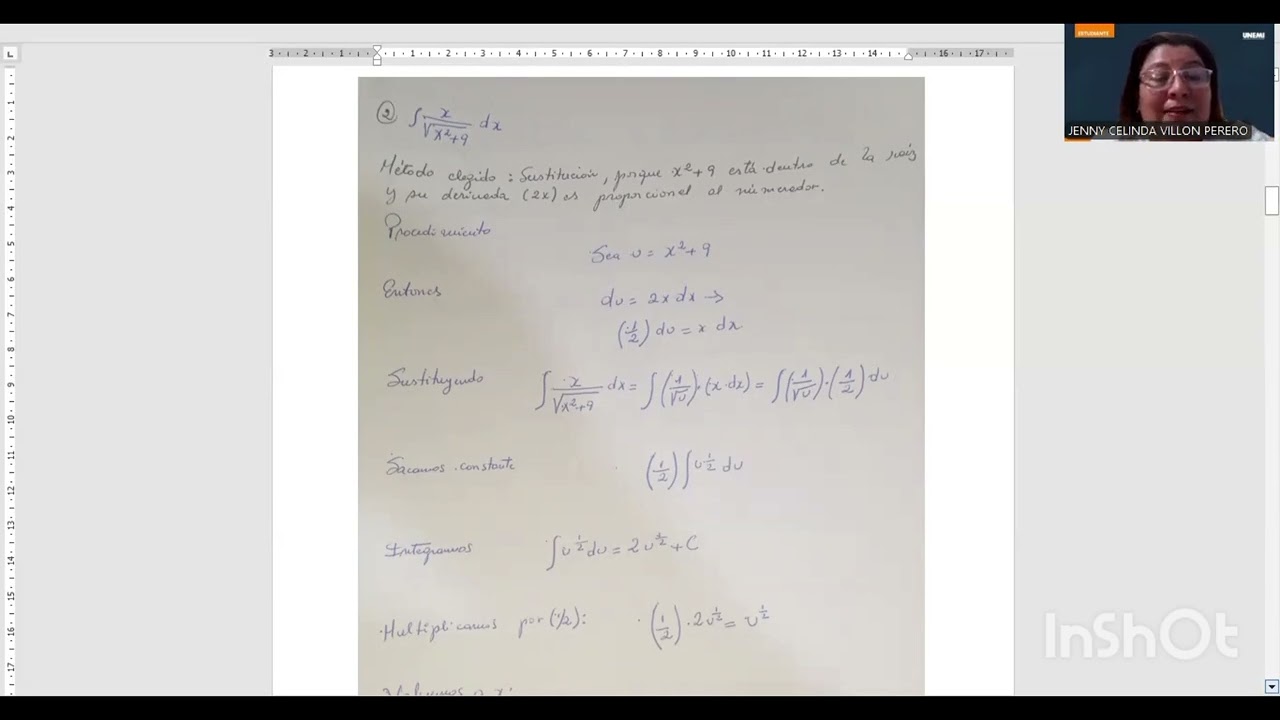 3 2 1 1 2 3 4 5 6 7 8 9 10 11 12 13 14 16 17
ESTUDIANTE
UNEMI
JENNY CELINDA VILLON PERERO
② ∫ x/√(x²+9) dx
Método elegido: Sustitución, porque x²+9 está dentro de la raíz
y su derivada (2x) es proporcional al númerador.
Procedimiento
Sea u = x²+9
Entonces
du = 2x dx →
(1/2) du = x dx
Sustituyendo ∫ x/√(x²+9) dx = ∫ (1/√u)·(x·dx) = ∫ (1/√u)·(1/2) du
Sacamos constante (1/2) ∫ u^(1/2) du
Integramos ∫ u^(1/2) du = 2u^(1/2) + C
Multiplicamos por (1/2): (1/2)·2u^(1/2) = u^(1/2)
InShOt